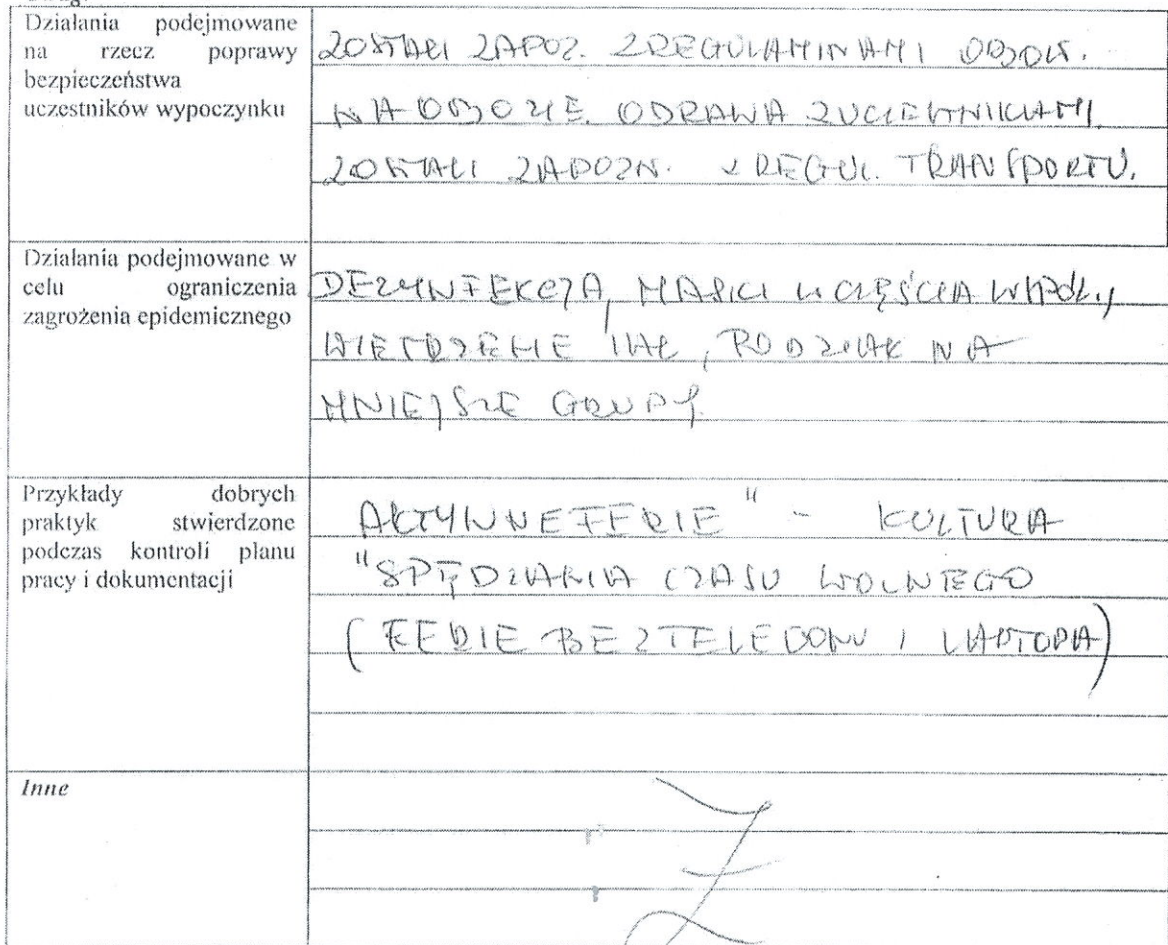 Działania podejmowane
na rzecz poprawy
bezpieczeństwa
uczestników wypoczynku
ZOSTALI ZAPOZ. Z REGULAMINAMI OBOW.
NA OBOZIE. ODPRAWA Z UCZESTNIKAMI
ZOSTALI ZAPOZN. Z REGUL. TRANSPORTU.
Działania podejmowane w
celu ograniczenia
zagrożenia epidemicznego
DEZYNFEKCJA, MASKI W CZĘŚCIACH WSPÓL.,
WIETRZENIE SAL, PODZIAŁ NA
MNIEJSZE GRUPY.
Przykłady dobrych
praktyk stwierdzone
podczas kontroli planu
pracy i dokumentacji
AKTYWNE FERIE" - KULTURA
"SPĘDZANIA CZASU WOLNEGO
(FERIE BEZ TELEFONU I LAPTOPA)
Inne